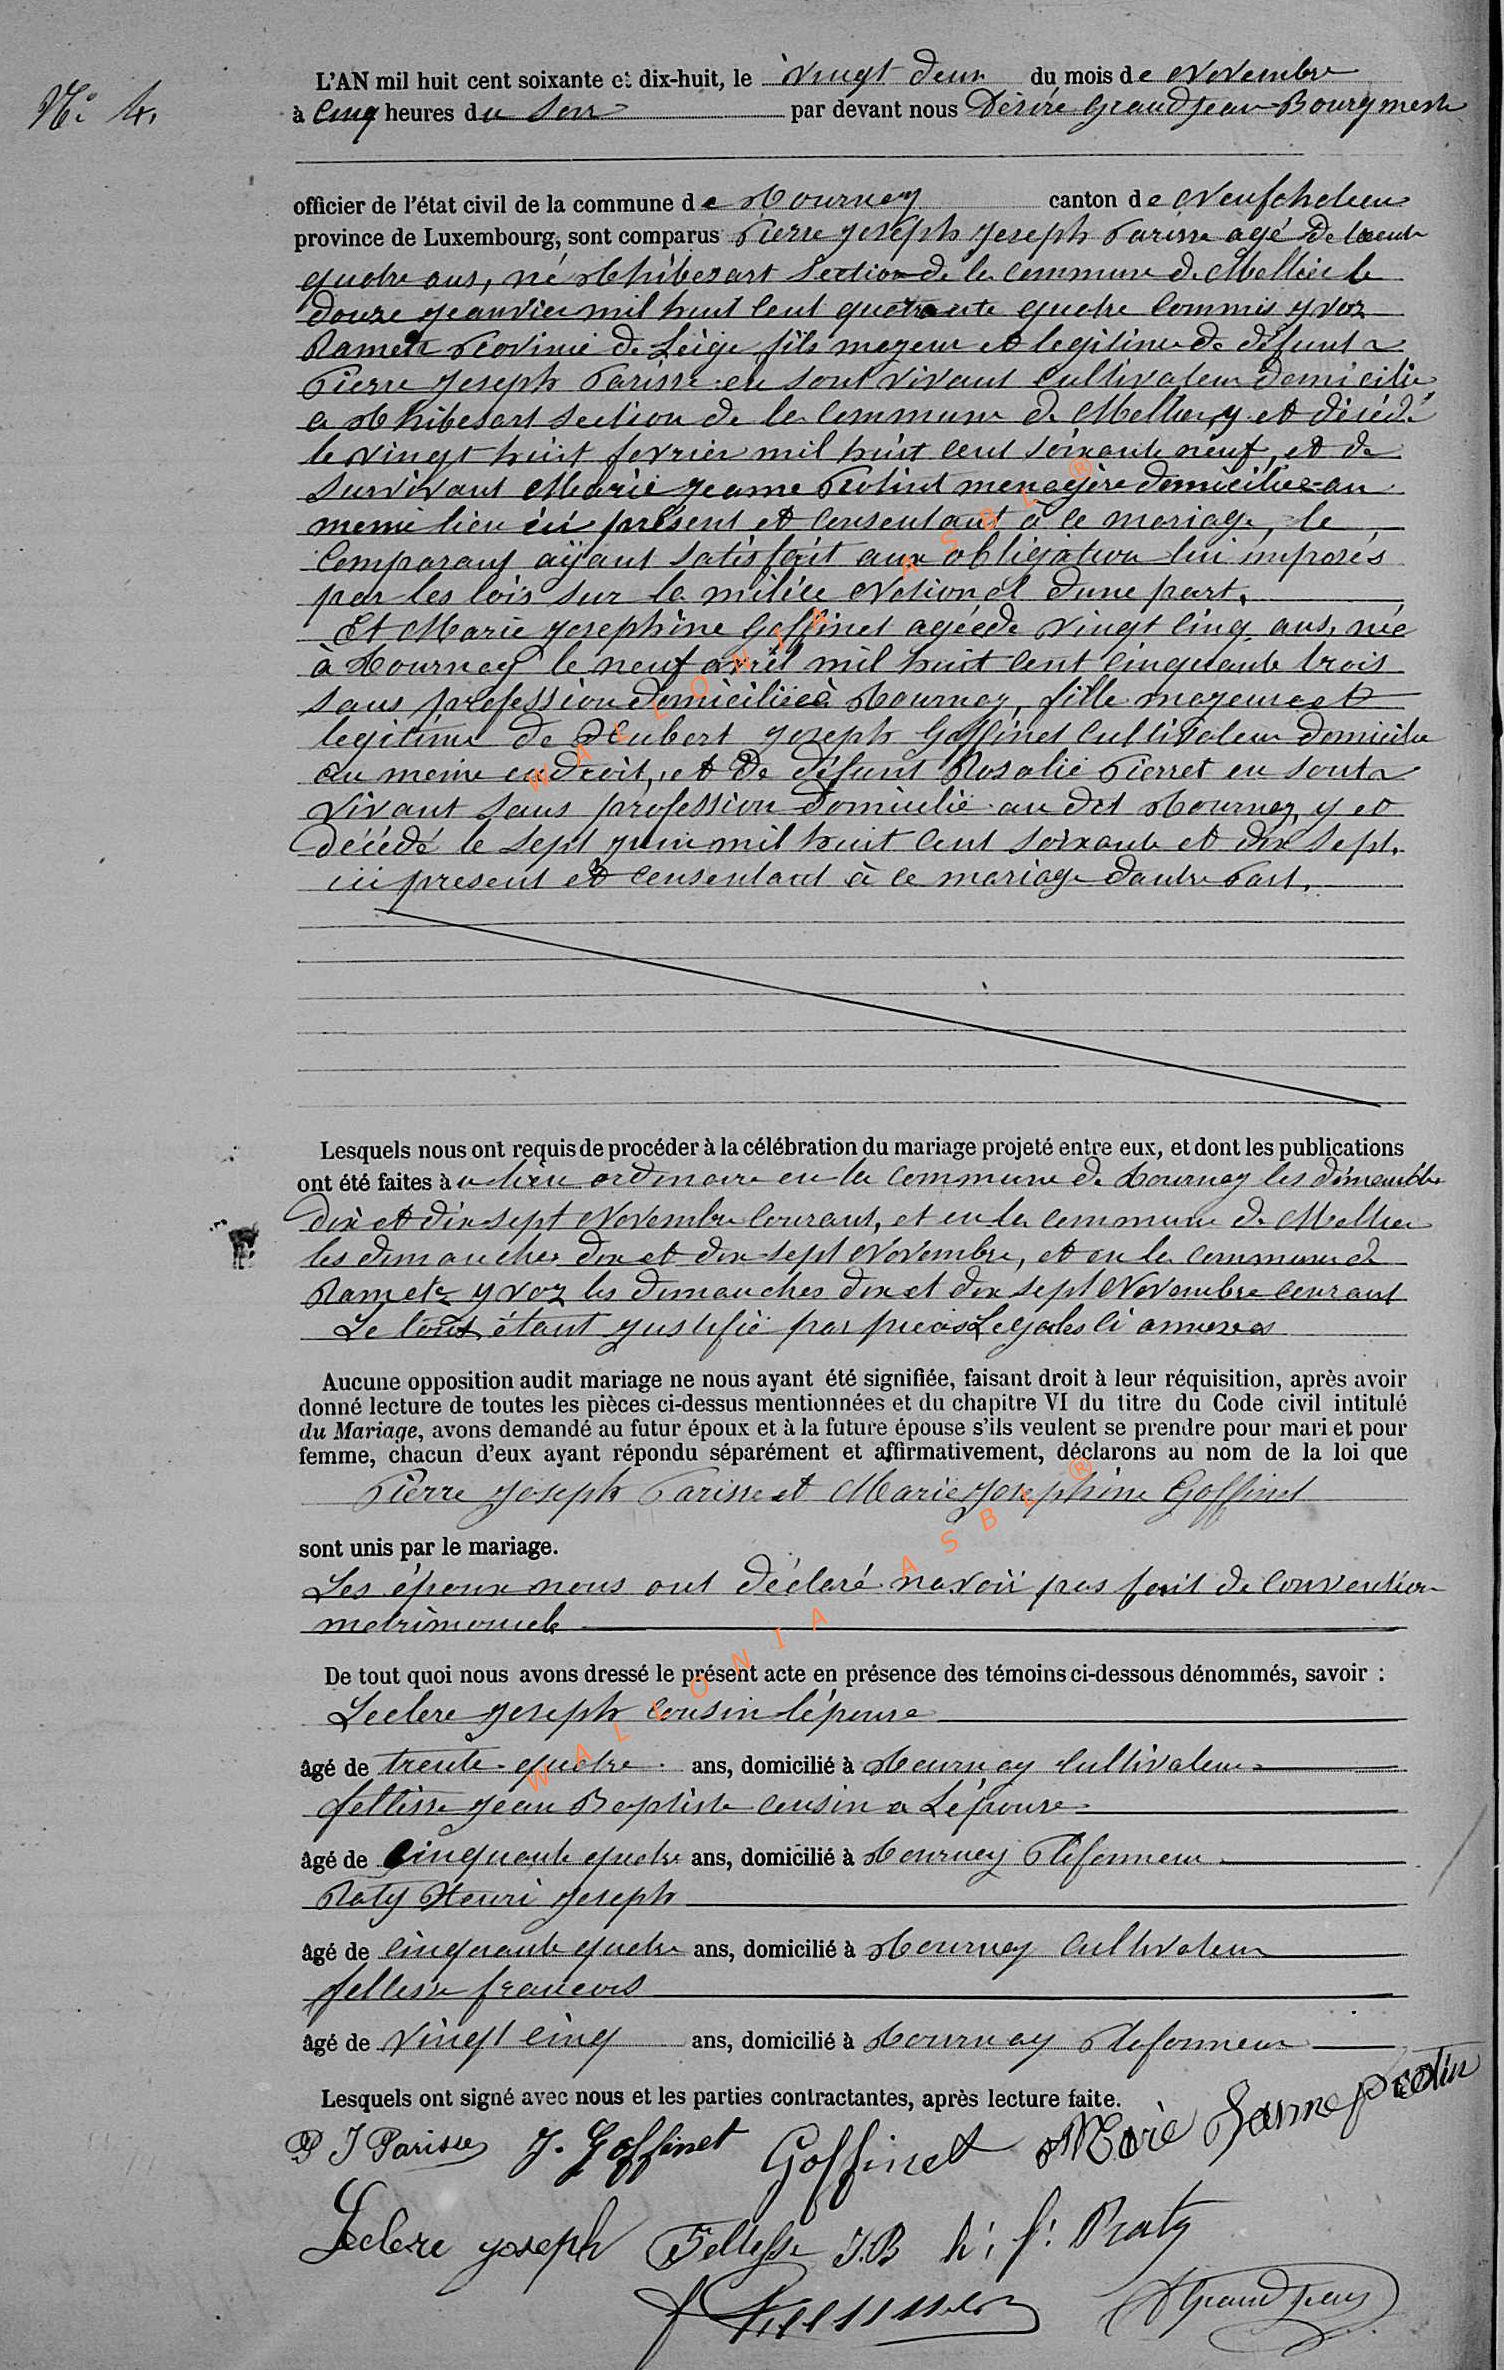 N° 4.
L'AN mil huit cent soixante et dix-huit, le vingt deux du mois de Novembre
à cinq heures du soir par devant nous Désiré Grandjean Bourgmestre
officier de l'état civil de la commune de Tournay canton de Neufchateau
province de Luxembourg, sont comparus Pierre Joseph Joseph Parisse agé de trente
quatre ans, né à Thibesart Section de la commune de Mellier le
douze janvier mil huit cent quarante quatre commis yvoz
Ramet Province de Liège fils mageur et legitime de défunt
Pierre Joseph Parisse en sont vivant cultivateur domicilié
a Thibesart section de la commune de Mellier, y et décédé
le vingt huit fevrier mil huit cent soixante neuf, et de
survivant Marie Jeanne Protint menagère domiciliée au
meme lieu ici présent et consentant à ce mariage, le
comparant ayant satisfait aux obligation lui imposés
par les lois sur la milice National dune part.
Et Marie Josephine Goffinet agée de vingt cinq ans, née
à Tournay le neuf avril mil huit cent cinquante trois
sans profession domiciliée à Tournay, fille mageure et
legitime de Hubert Joseph Goffinet cultivateur domicilie
au meme endroit, et de défunt Rosalie Pierret en sont
vivant sans profession domicilié au dit Tournay, y et
décédé le sept juin mil huit cent soixante et dix sept.
ici present et consentant à ce mariage dautre Part.
Lesquels nous ont requis de procéder à la célébration du mariage projeté entre eux, et dont les publications
ont été faites au lieu ordinaire en la commune de Tournay les dimanches
dix et dix-sept Novembre courant, et en la commune de Mellier
les dimanches dix et dix-sept Novembre, et en la commune de
Ramet yvoz les dimanches dix et dix sept Novembre courant
Le tout étant justifié par pieces Legales ci annexes
Aucune opposition audit mariage ne nous ayant été signifiée, faisant droit à leur réquisition, après avoir
donné lecture de toutes les pièces ci-dessus mentionnées et du chapitre VI du titre du Code civil intitulé
du Mariage, avons demandé au futur époux et à la future épouse s'ils veulent se prendre pour mari et pour
femme, chacun d'eux ayant répondu séparément et affirmativement, déclarons au nom de la loi que
Pierre Joseph Parisse et Marie Josephine Goffinet
sont unis par le mariage.
Les époux nous ont déclaré navoir pas fait de convention
matrimoniale
De tout quoi nous avons dressé le présent acte en présence des témoins ci-dessous dénommés, savoir :
Leclere Joseph cousin lépouse
âgé de trente-quatre ans, domicilié à Tournay cultivateur
fellesse Jean Baptiste cousin a Lépouse
âgé de cinquante quatre ans, domicilié à Tournay Plafonneur
Raty Henri Joseph
âgé de cinquante quatre ans, domicilié à Tournay cultivateur
fellesse francois
âgé de vingt cinq ans, domicilié à Tournay Plafonneur
Lesquels ont signé avec nous et les parties contractantes, après lecture faite.
P J Parisse J. Goffinet Goffinet Marie Jeanne protin
Leclere joseph Fellesse J.B h. j. Raty
D Grandjean
WALLONIA ASBL ®
WALLONIA ASBL ®